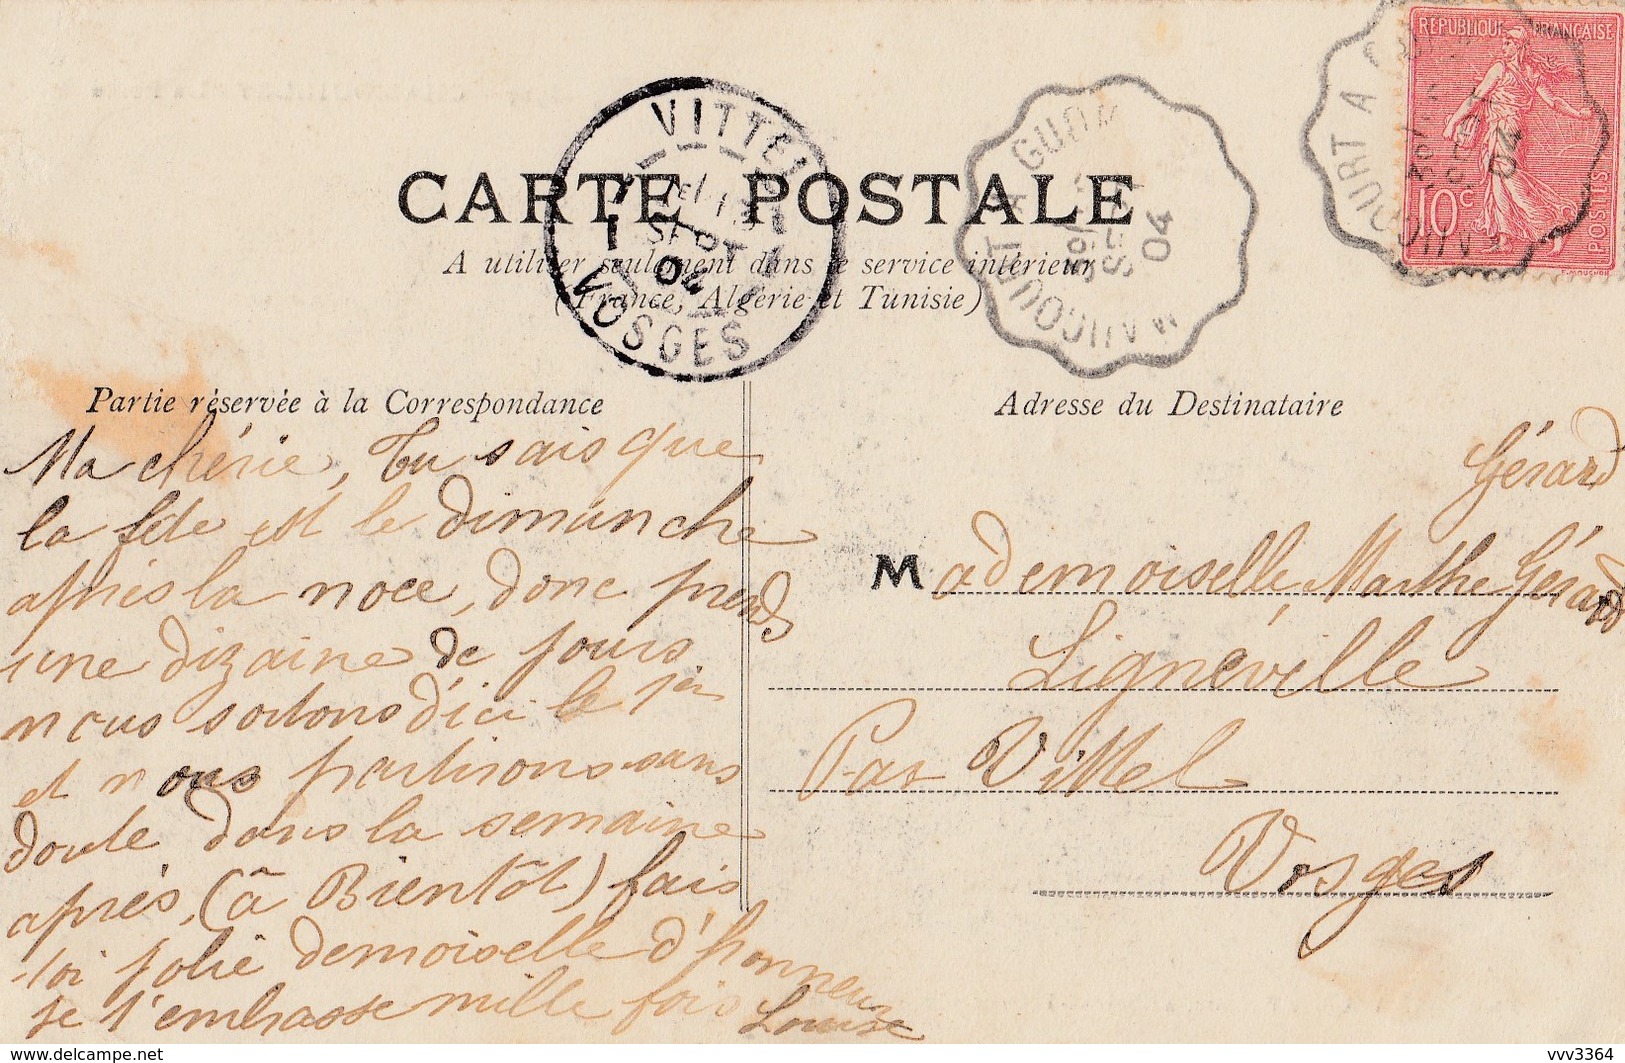 REPUBLIQUE FRANÇAISE
10c
POSTES
E. MOUCHON
VITTEL
1 SEPT
04
VOSGES
AUCOURT A
SEPT
04
CARTE POSTALE
A utiliser seulement dans le service intérieur
(France, Algérie et Tunisie)
Partie réservée à la Correspondance
Ma chérie, Tu sais que
la fete est le dimanche
après la noce, donc prends
une dizaine de jours
nous sortons d'ici le 1er
et nous partirons sans
doute dans la semaine
après, (à Bientôt) fais
toi jolie demoiselle d'honneur
je t'embrasse mille fois Louise
Adresse du Destinataire
Gérard
Mademoiselle Marthe Gérard
Lignéville
Par Vittel
Vosges
www.delcampe.net
vvv3364